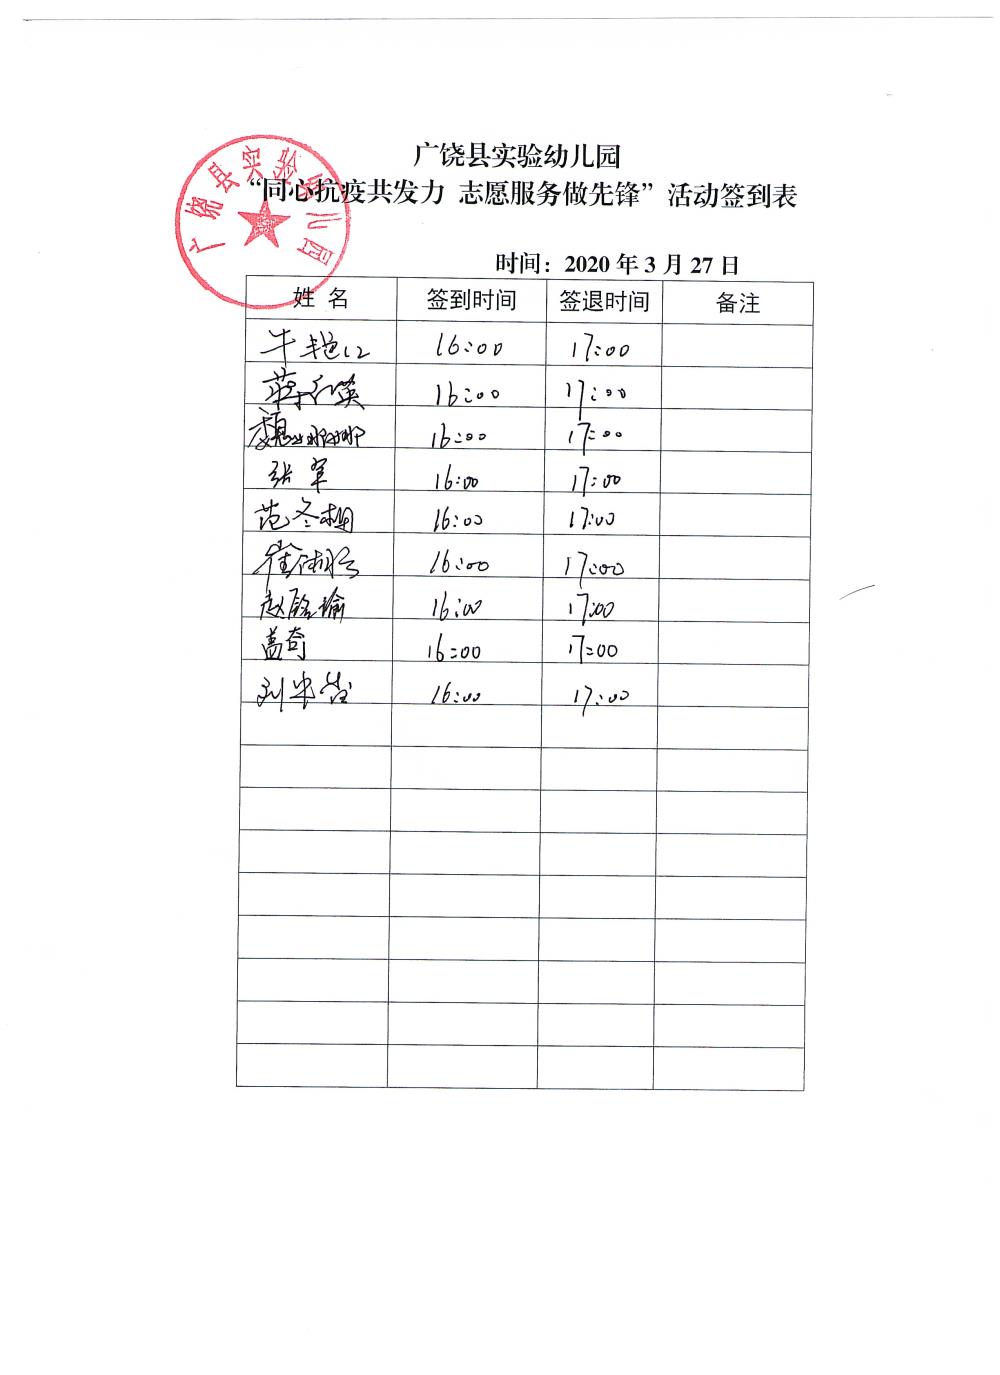 广饶县实验幼儿园
“同心抗疫共发力 志愿服务做先锋”活动签到表
广饶县实验幼儿园
时间：2020年3月27日
姓 名 签到时间 签退时间 备注
牛艳红 16:00 17:00
16:00 17:00
魏娜娜 16:00 17:00
张军 16:00 17:00
范冬梅 16:00 17:00
崔 16:00 17:00
赵 瑜 16:00 17:00
盖奇 16:00 17:00
刘 16:00 17:00